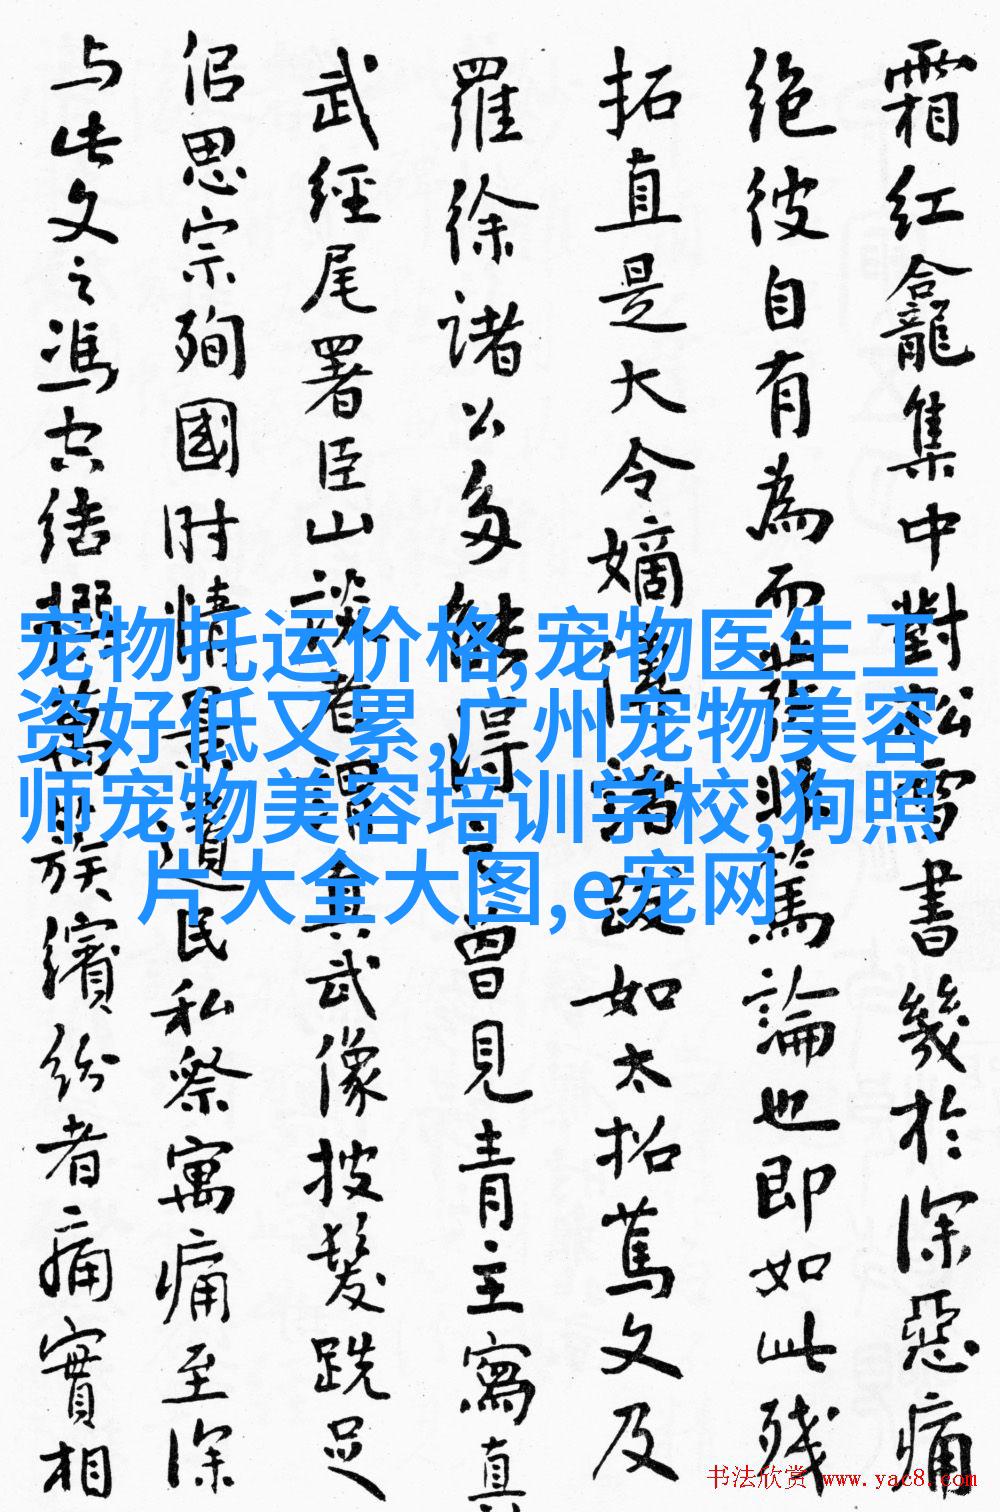 霜红龕集中對松雪書幾於深惡痛
绝彼自有為而發非篤論也即如此残
拓直是大令嫡跋如太拓篤文及
羅徐諸公多能得曾見青主寫真
武經尾署臣山談者謂真武像披髮跣足
侣思宗殉國时情景遺民私察寓痛至深
与此文之馮结撰萬族繽紛者痛實相
宠物托运价格,宠物医生工
资好低又累,广州宠物美容
师宠物美容培训学校,狗照
片大全大图,e宠网
书法欣赏 www.yac8.com